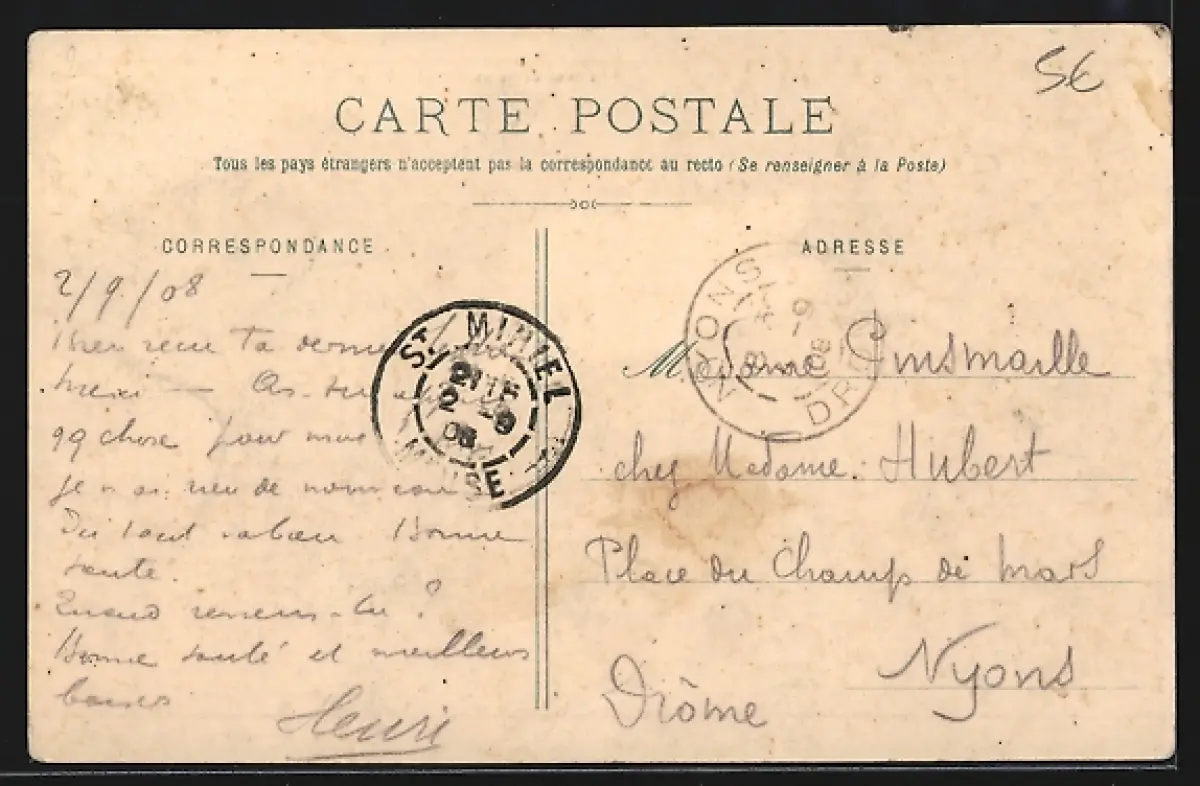 5€
CARTE POSTALE
Tous les pays étrangers n'acceptent pas la correspondance au recto (Se renseigner à la Poste)
CORRESPONDANCE
2/9/08
Bien reçu ta
merci — As-tu
qq chose pour
je n'ai rien de nouveau
Du tout Bonne
santé.
Quand reviens-tu ?
Bonne santé et meilleurs
baisers
Henri
ST MIHIEL
2 - 9
08
MEUSE
ADRESSE
NYONS
- 9
08
DRÔME
Madame Pinsmaille
chez Madame Hubert
Place du Champ de Mars
Nyons
Drôme